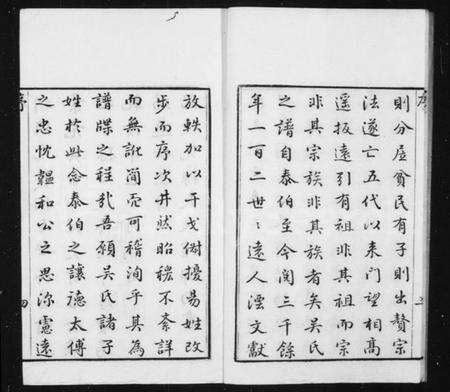 序
則分居貧民有子則出贅宗
法遂亡五代以来門望相高
遥扳遠引有祖非其祖而宗
非其宗族非其族者矣吴氏
之譜自泰伯至今閲三千餘
年一百二世世逺人湮文獻
放軼加以干戈俶擾易姓改
步而序次井然昭穆不紊詳
而無訛簡而可稽洵乎其為
譜牒之程式吾願吴氏諸子
姓於此念泰伯之讓德太傅
之忠忱韞和公之思深慮遠
序
四